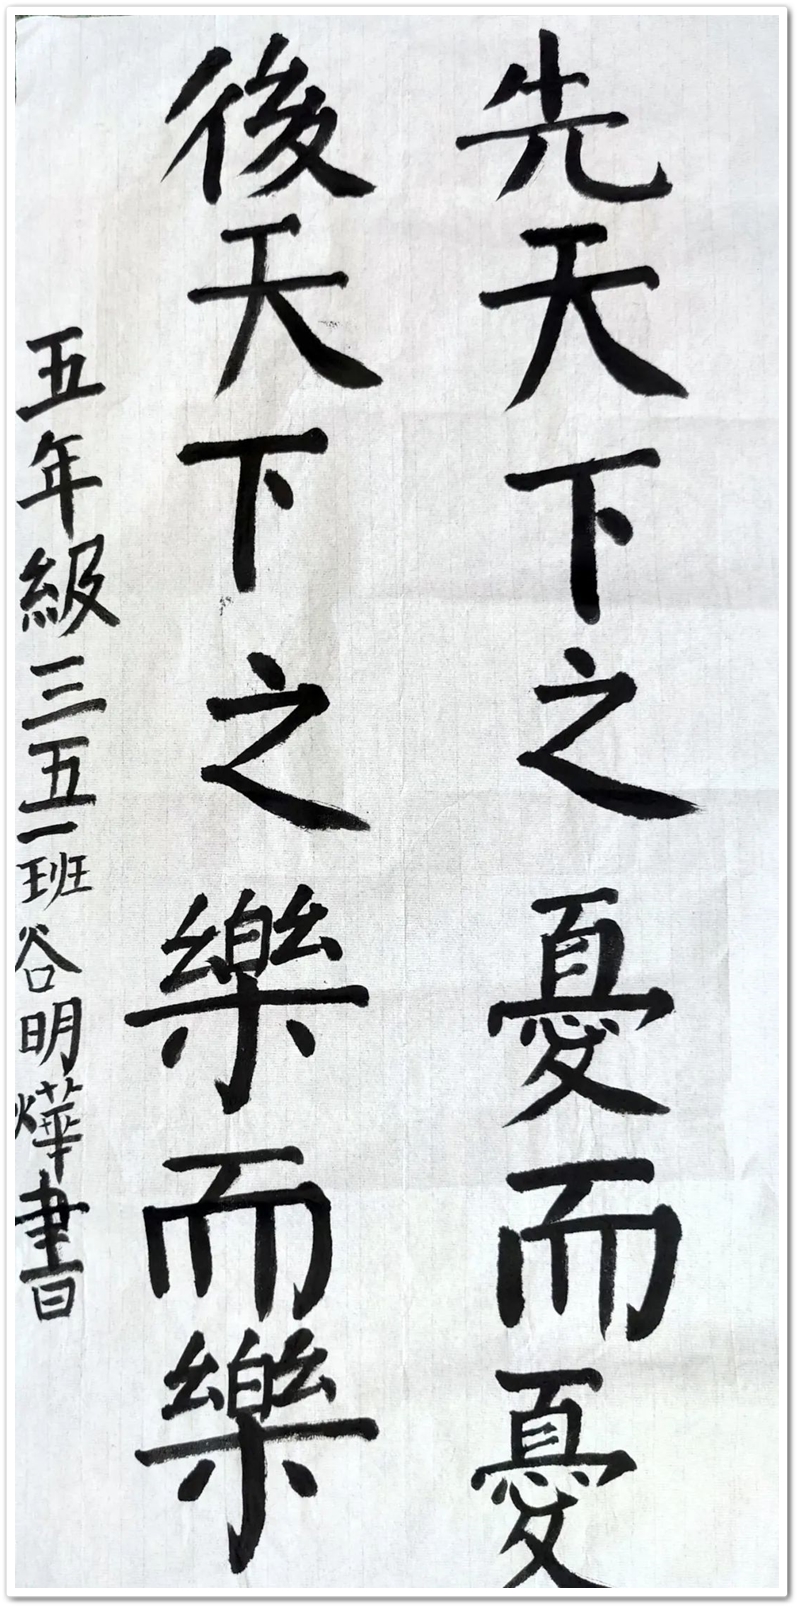 先天下之憂而憂
後天下之樂而樂
五年級三五一班谷明燁書